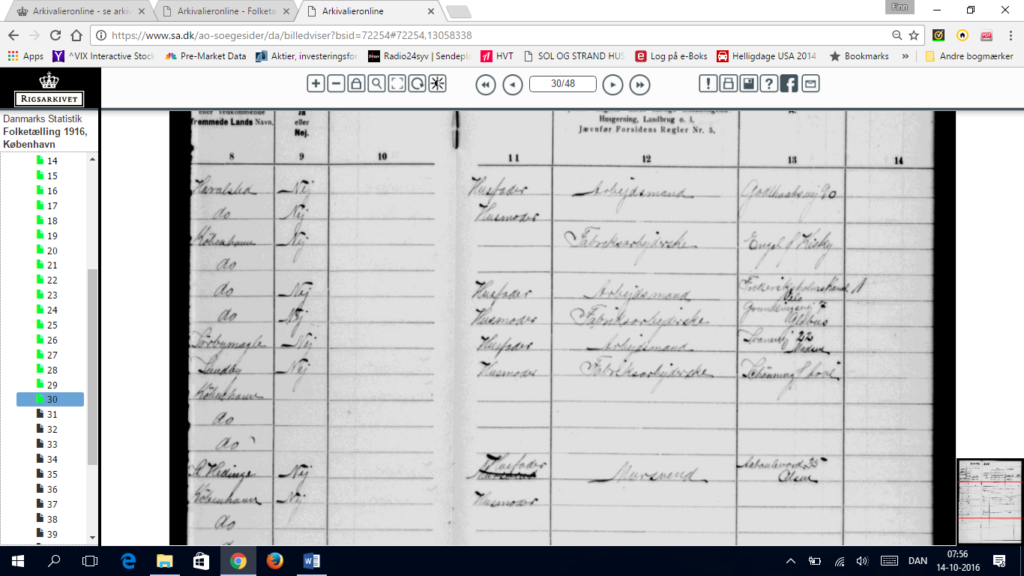 Arkivalieronline - se arkiv
Arkivalieronline - Folketa
Arkivalieronline
Finn
https://www.sa.dk/ao-soegesider/da/billedviser?bsid=72254#72254,13058338
Apps
^VIX Interactive Stock
Pre-Market Data
Aktier, investeringsfor
Radio24syv | Sendepl
HVT
SOL OG STRAND HUS
Log på e-Boks
Helligdage USA 2014
Bookmarks
»
Andre bogmærker
RIGSARKIVET
30/48
Danmarks Statistik
Folketælling 1916,
København
14
15
16
17
18
19
20
21
22
23
24
25
26
27
28
29
30
31
32
33
34
35
36
37
38
39
fremmede Lands Navn.
eller
Nej.
Husgerning, Landbrug o. l.
Jævnfør Forsidens Regler Nr. 5.
8 9 10 11 12 13 14
Haralsted Nej Husfader Arbejdsmand Godthaabsvej 90
do Nej Husmoder
København Nej Fabriksarbejderske
do
do Nej Husfader Arbejdsmand
do Nej Husmoder Fabriksarbejderske
Sørbymagle Nej Husfader Arbejdsmand
Lundby Nej Husmoder Fabriksarbejderske
København
do
do
St Hedinge Nej Husfader Mursvend
Olsen
København Nej Husmoder
do
DAN
07:56
14-10-2016